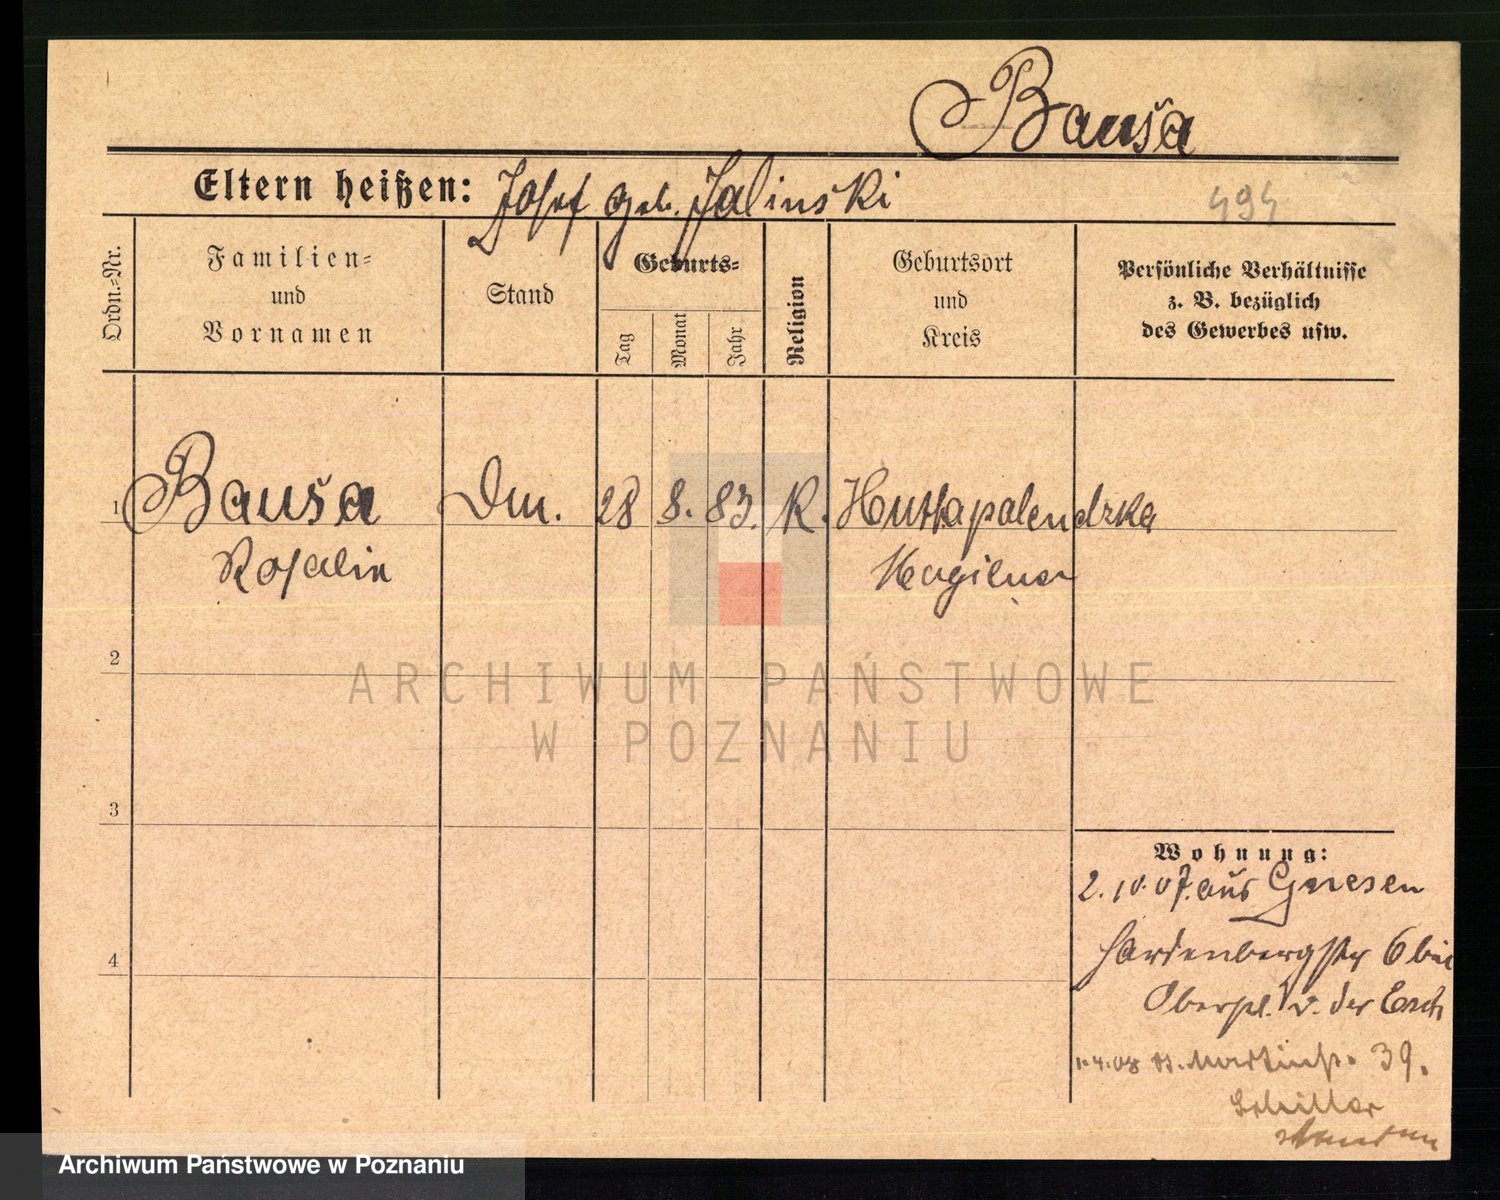 Bauša
Eltern heißen: Josef geb. Jalinski
494
Ordn.-Nr.
Familien-
und
Vornamen
Stand
Geburts-
Tag
Monat
Jahr
Religion
Geburtsort
und
Kreis
Persönliche Verhältnisse
z. B. bezüglich
des Gewerbes usw.
1 Bauša Dm. 28 8. 83. K. Huttapalendzka
Rosalie Mogilno
2
ARCHIWUM PAŃSTWOWE
W POZNANIU
3
Wohnung:
2.10.07. aus Gnesen
Hardenbergstr 6 bei
Oberpl. v. der Esch
4
1.4.08 St. Martinstr. 39.
Schiller
Archiwum Państwowe w Poznaniu